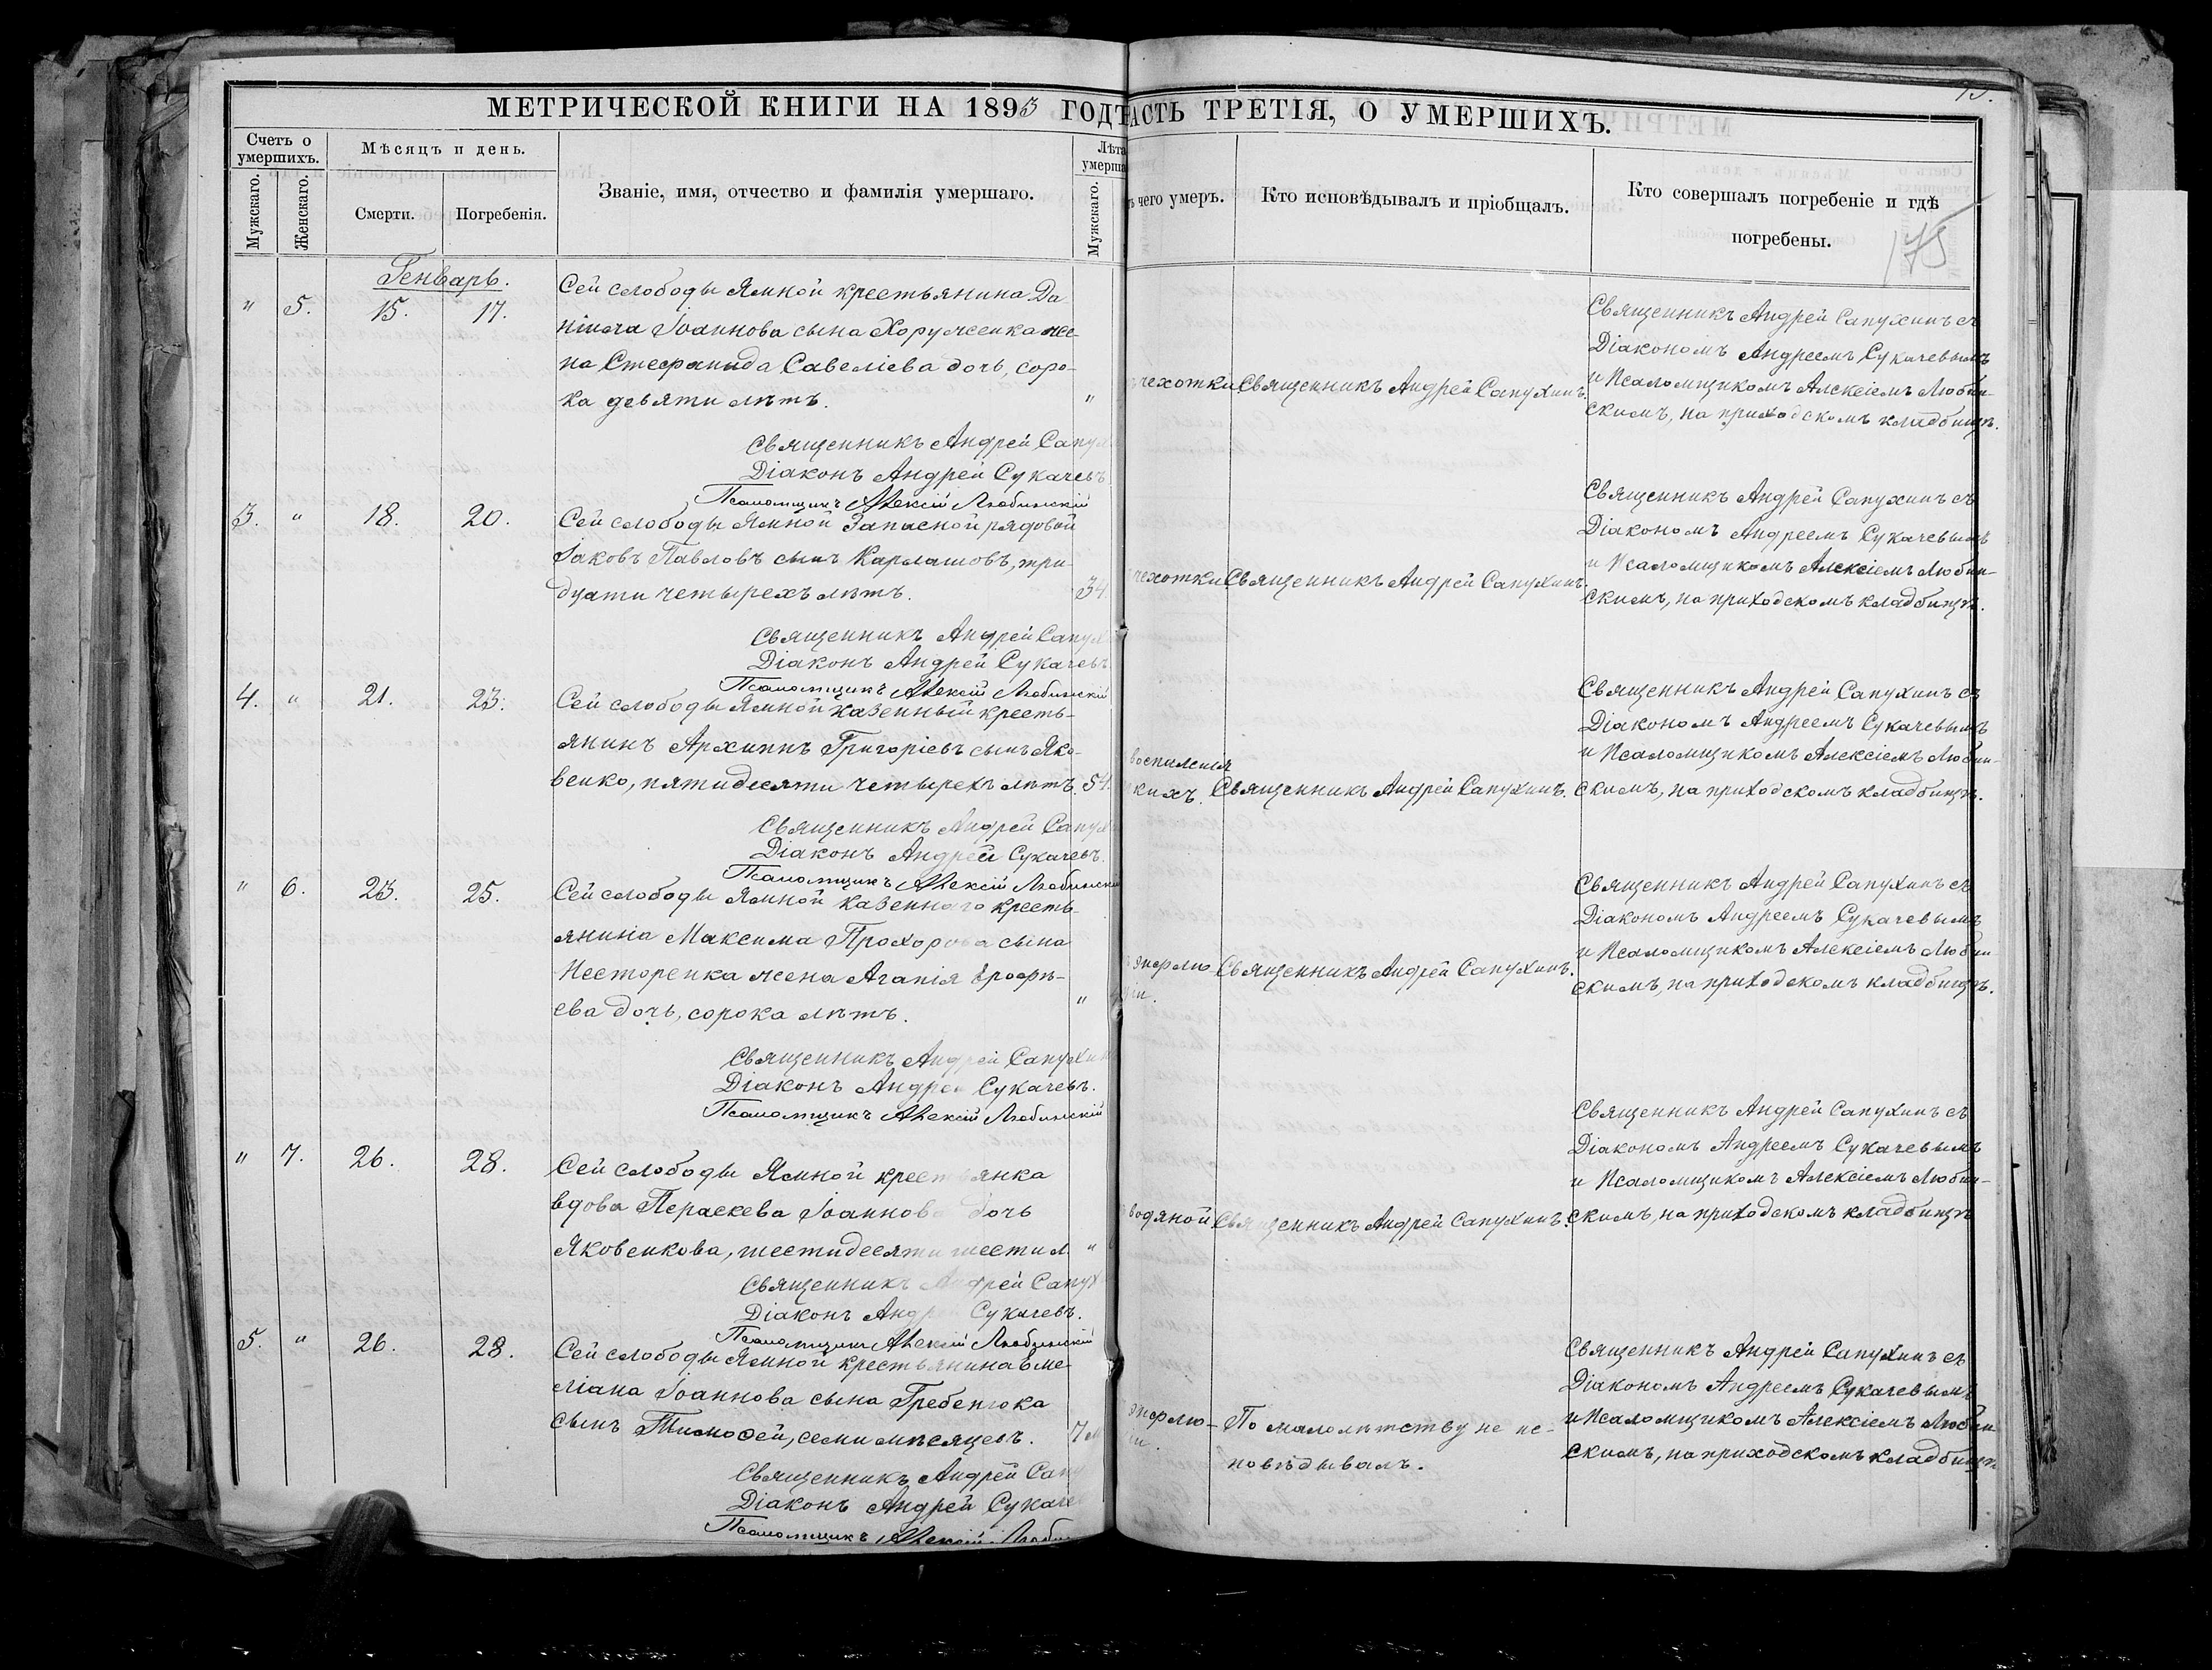 МЕТРИЧЕСКОЙ КНИГИ НА 1893 ГОДЪ
Счетъ о умершихъ.
Мужскаго.
Женскаго.
Мѣсяцъ и день.
Смерти.
Погребенія.
Званіе, имя, отчество и фамилія умершаго.
Лѣта
умерша
Мужскаго.
Генварь.
" 5. 15. 17. Сей слободы Ямной крестьянина Да
ніила Іоаннова сына Хоруженка же-
на Стефанида Савеліева дочь, соро-
ка девяти лѣтъ. "
Священникъ Андрей Сапух
Діаконъ Андрей Сукачевъ
Псаломщикъ Алексій Любинскій
3. " 18. 20. Сей слободы Ямной Запасной рядовой
Іаковъ Павловъ сынъ Карлашовъ, три-
дцати четырехъ лѣтъ. 34.
Священникъ Андрей Сапух
Діаконъ Андрей Сукачевъ.
Псаломщикъ Алексій Любинскій
4. " 21. 23. Сей слободы Ямной казенный кресть-
янинъ Архиппъ Григоріевъ сынъ Яко-
венко, пятидесяти четырехъ лѣтъ. 54.
Священникъ Андрей Сапух
Діаконъ Андрей Сукачевъ.
Псаломщикъ Алексій Любинскій
" 6. 23. 25. Сей слободы Ямной казеннаго кресть-
янина Максима Прохорова сына
Несторенка жена Агапія Ерофѣ-
ева дочь, сорока лѣтъ. "
Священникъ Андрей Сапухин
Діаконъ Андрей Сукачевъ.
Псаломщикъ Алексій Любинскій
" 7. 26. 28. Сей слободы Ямной крестьянка
вдова Параскева Іоаннова дочь
Яковенкова, шестидесяти шести л. "
Священникъ Андрей Сапух
Діаконъ Андрей Сукачевъ.
Псаломщикъ Алексій Любинскій
5. " 26. 28. Сей слободы Ямной крестьянина Еме
ліана Іоаннова сына Гребенюка
сынъ Тимоѳей, семи мѣсяцевъ. 7 м
Священникъ Андрей Сапу
Діаконъ Андрей Сукаче
Псаломщикъ Алексій Люби
АСТЬ ТРЕТІЯ, О УМЕРШИХЪ.
75.
чего умеръ.
Кто исповѣдывалъ и пріобщалъ.
Кто совершалъ погребеніе и гдѣ
погребены.
175
Священникъ Андрей Сапухинъ съ
Діакономъ Андреемъ Сукачевымъ
чехотки Священникъ Андрей Сапухинъ. и Псаломщикомъ Алексіемъ Любин-
скимъ, на приходскомъ кладбищѣ.
Священникъ Андрей Сапухинъ съ
Діакономъ Андреемъ Сукачевымъ
чехотки Священникъ Андрей Сапухинъ. и Псаломщикомъ Алексіемъ Любин-
скимъ, на приходскомъ кладбищѣ.
Священникъ Андрей Сапухинъ съ
Діакономъ Андреемъ Сукачевымъ
воспаленія и Псаломщикомъ Алексіемъ Любин-
кихъ. Священникъ Андрей Сапухинъ. скимъ, на приходскомъ кладбищѣ.
Священникъ Андрей Сапухинъ съ
Діакономъ Андреемъ Сукачевымъ
инфлю- Священникъ Андрей Сапухинъ. и Псаломщикомъ Алексіемъ Любин
скимъ, на приходскомъ кладбищѣ.
Священникъ Андрей Сапухинъ съ
Діакономъ Андреемъ Сукачевымъ
и Псаломщикомъ Алексіемъ Любин-
водяной Священникъ Андрей Сапухинъ. скимъ, на приходскомъ кладбищѣ
Священникъ Андрей Сапухинъ съ
Діакономъ Андреемъ Сукачевымъ
инфлю- По малолѣтству не ис- и Псаломщикомъ Алексіемъ Любин-
повѣдывалъ. скимъ, на приходскомъ кладбищѣ